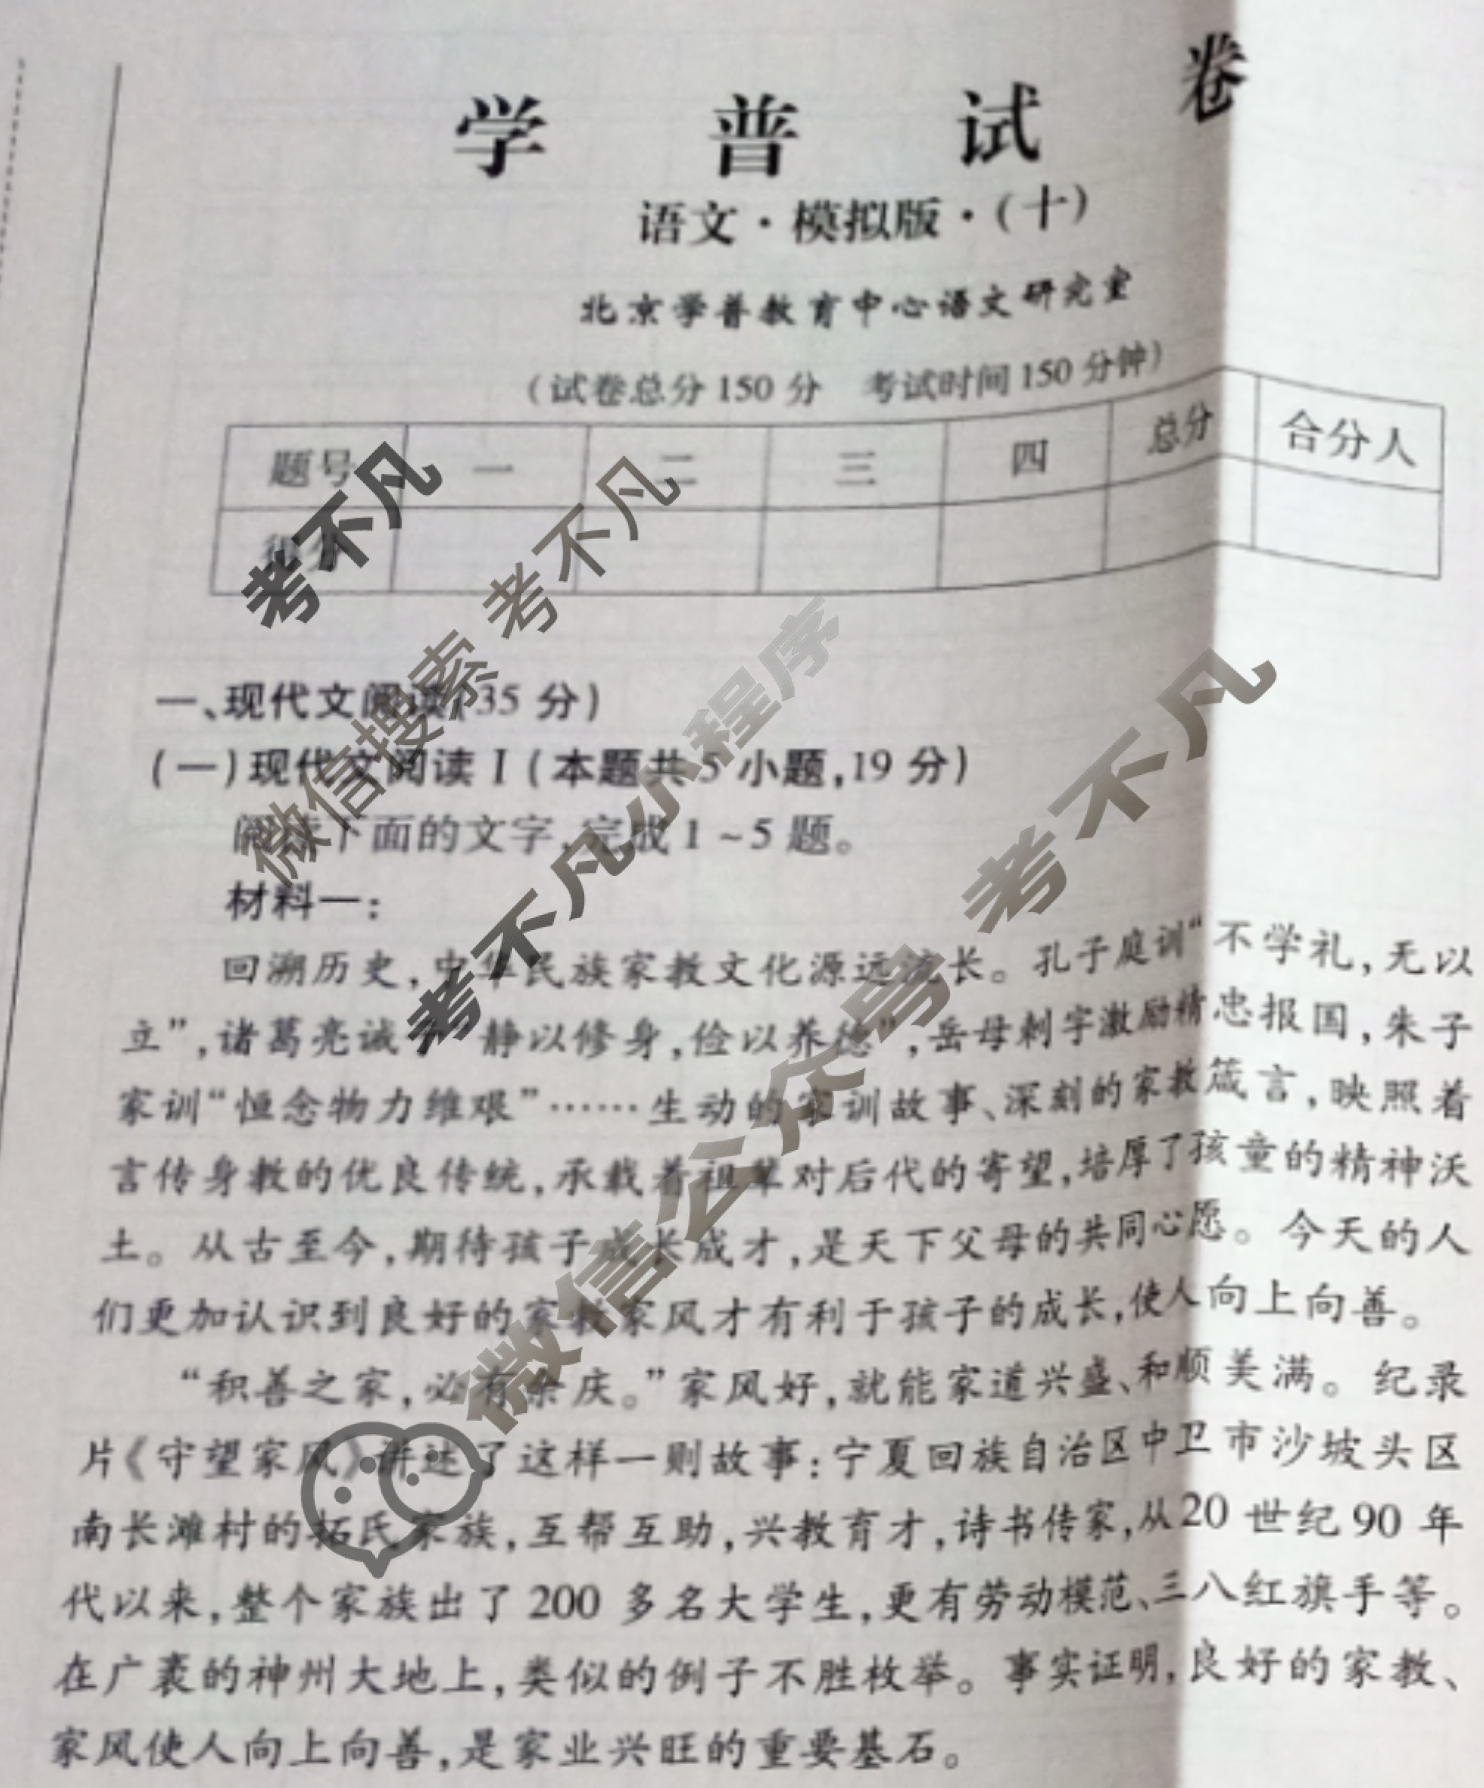 学 普 试 卷
语文·模拟版·(十)
北京学普教育中心语文研究室
(试卷总分150分 考试时间150分钟)
题号 一 二 三 四 总分 合分人
得分
一、现代文阅读(35分)
(一)现代文阅读Ⅰ(本题共5小题,19分)
阅读下面的文字,完成1~5题。
材料一:
回溯历史,中华民族家教文化源远流长。孔子庭训“不学礼,无以
立”,诸葛亮诫子“静以修身,俭以养德”,岳母刺字激励精忠报国,朱子
家训“恒念物力维艰”……生动的家训故事、深刻的家教箴言,映照着
言传身教的优良传统,承载着祖辈对后代的寄望,培厚了孩童的精神沃
土。从古至今,期待孩子成长成才,是天下父母的共同心愿。今天的人
们更加认识到良好的家教家风才有利于孩子的成长,使人向上向善。
“积善之家,必有余庆。”家风好,就能家道兴盛、和顺美满。纪录
片《守望家风》讲述了这样一则故事:宁夏回族自治区中卫市沙坡头区
南长滩村的拓氏家族,互帮互助,兴教育才,诗书传家,从20世纪90年
代以来,整个家族出了200多名大学生,更有劳动模范、三八红旗手等。
在广袤的神州大地上,类似的例子不胜枚举。事实证明,良好的家教、
家风使人向上向善,是家业兴旺的重要基石。
考不凡
微信搜索 考不凡
考不凡小程序
微信公众号 考不凡